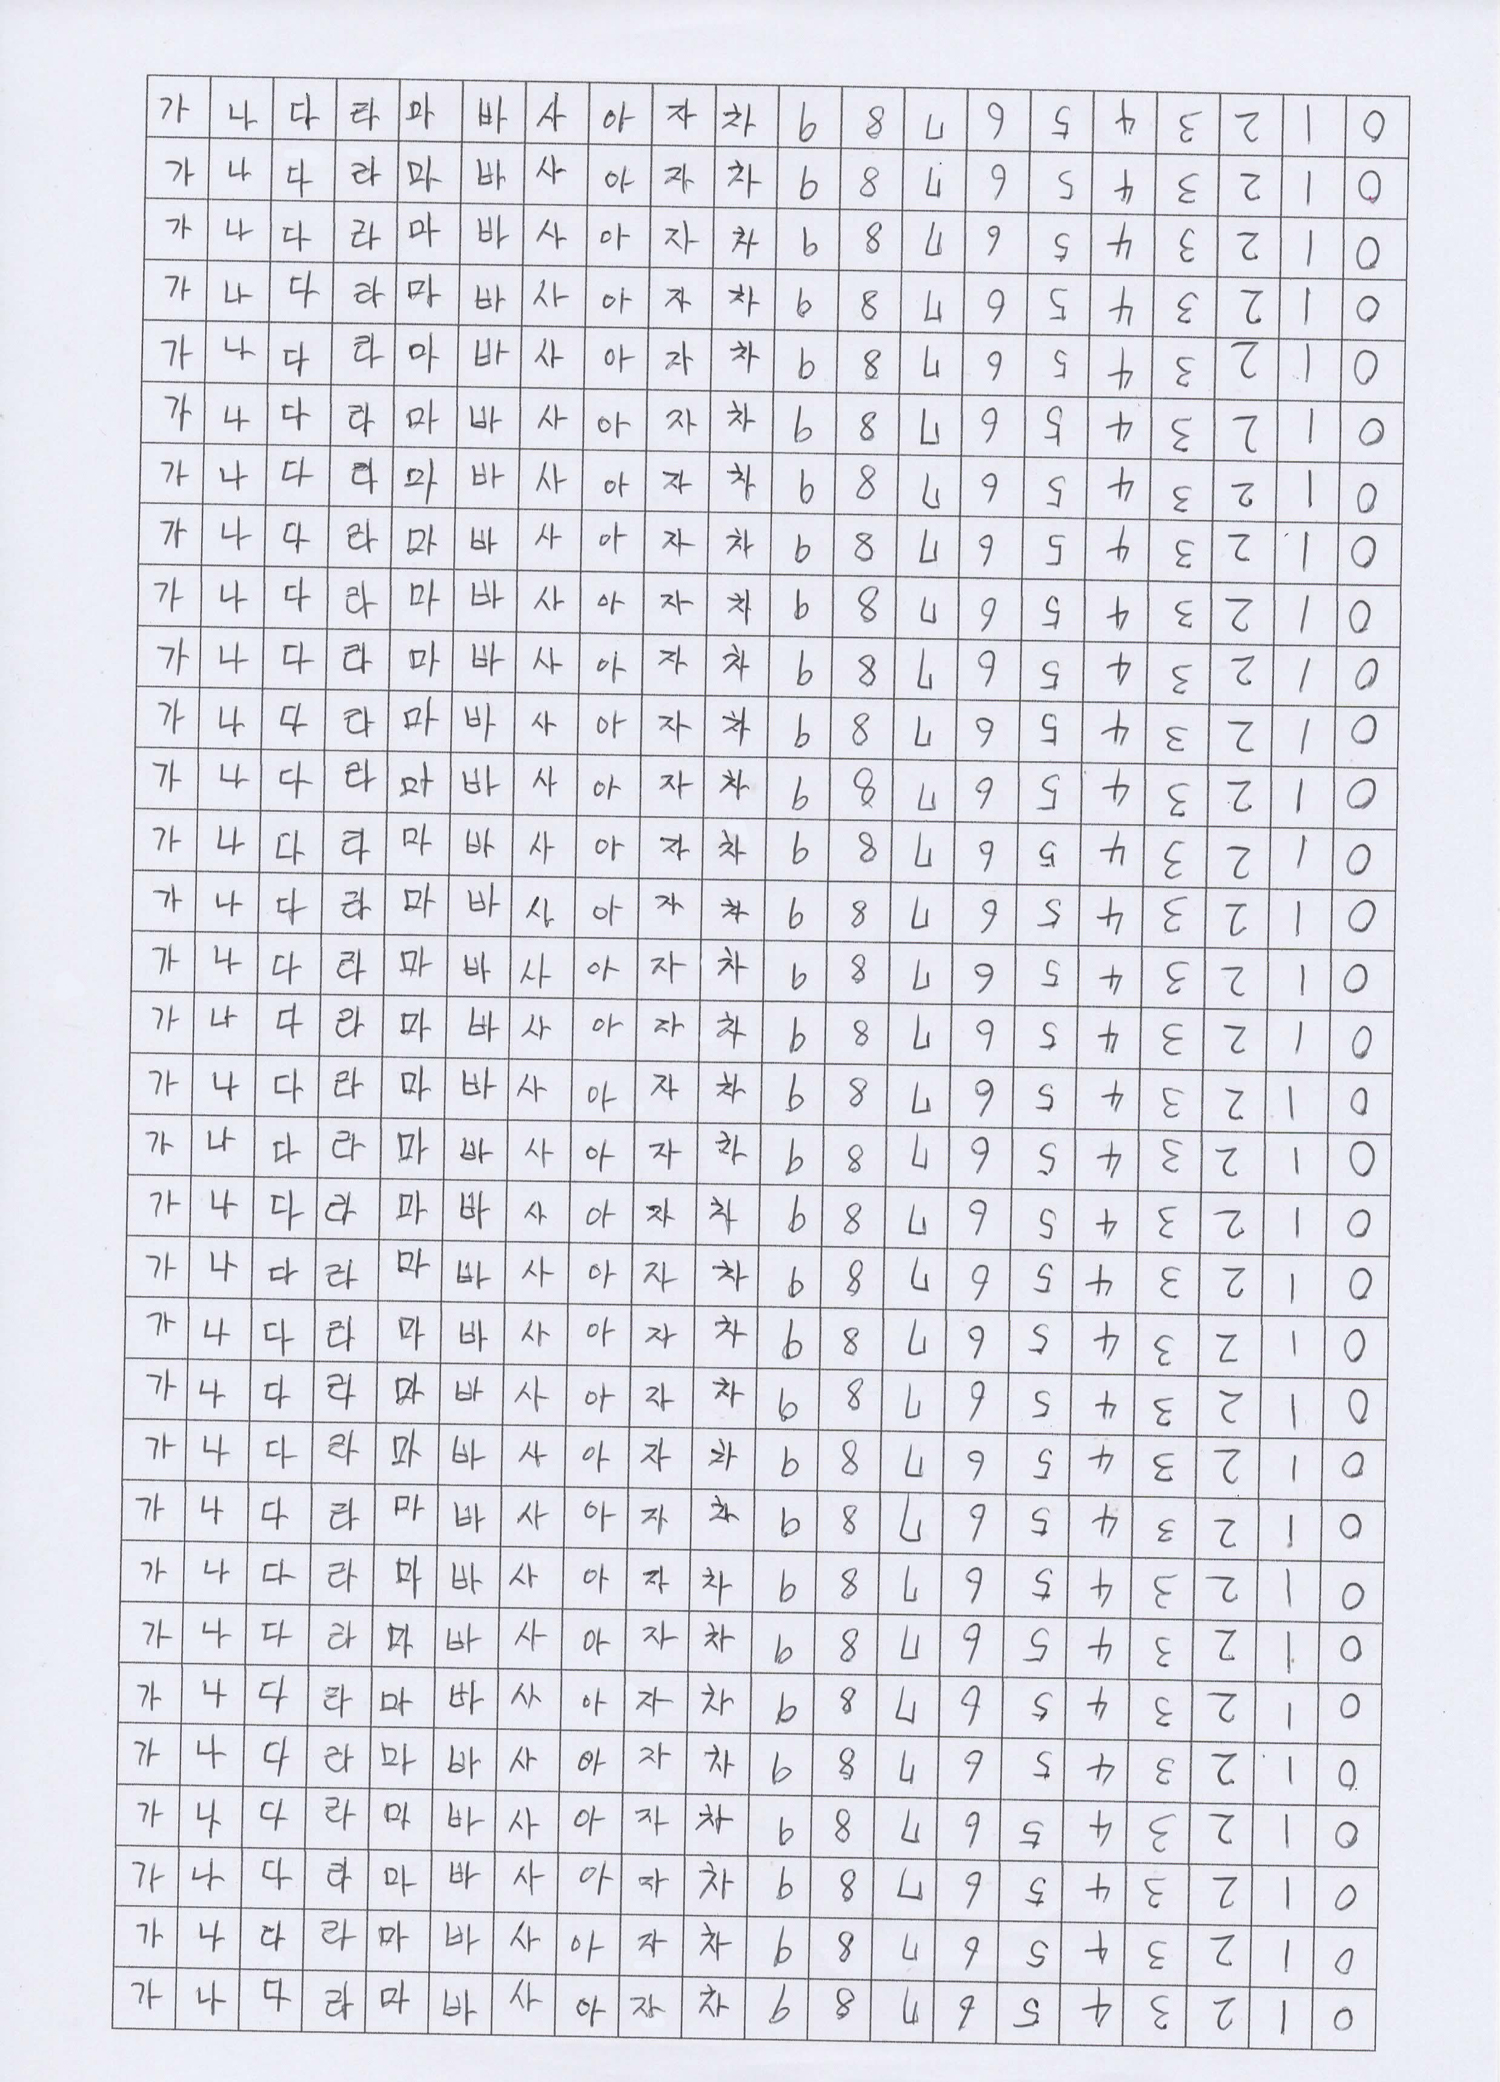 가 나 다 라 마 바 사 아 자 차 9 8 7 6 5 4 3 2 1 0
가 나 다 라 마 바 사 아 자 차 9 8 7 6 5 4 3 2 1 0
가 나 다 라 마 바 사 아 자 차 9 8 7 6 5 4 3 2 1 0
가 나 다 라 마 바 사 아 자 차 9 8 7 6 5 4 3 2 1 0
가 나 다 라 마 바 사 아 자 차 9 8 7 6 5 4 3 2 1 0
가 나 다 라 마 바 사 아 자 차 9 8 7 6 5 4 3 2 1 0
가 나 다 라 마 바 사 아 자 차 9 8 7 6 5 4 3 2 1 0
가 나 다 라 마 바 사 아 자 차 9 8 7 6 5 4 3 2 1 0
가 나 다 라 마 바 사 아 자 차 9 8 7 6 5 4 3 2 1 0
가 나 다 라 마 바 사 아 자 차 9 8 7 6 5 4 3 2 1 0
가 나 다 라 마 바 사 아 자 차 9 8 7 6 5 4 3 2 1 0
가 나 다 라 마 바 사 아 자 차 9 8 7 6 5 4 3 2 1 0
가 나 다 라 마 바 사 아 자 차 9 8 7 6 5 4 3 2 1 0
가 나 다 라 마 바 사 아 자 차 9 8 7 6 5 4 3 2 1 0
가 나 다 라 마 바 사 아 자 차 9 8 7 6 5 4 3 2 1 0
가 나 다 라 마 바 사 아 자 차 9 8 7 6 5 4 3 2 1 0
가 나 다 라 마 바 사 아 자 차 9 8 7 6 5 4 3 2 1 0
가 나 다 라 마 바 사 아 자 차 9 8 7 6 5 4 3 2 1 0
가 나 다 라 마 바 사 아 자 차 9 8 7 6 5 4 3 2 1 0
가 나 다 라 마 바 사 아 자 차 9 8 7 6 5 4 3 2 1 0
가 나 다 라 마 바 사 아 자 차 9 8 7 6 5 4 3 2 1 0
가 나 다 라 마 바 사 아 자 차 9 8 7 6 5 4 3 2 1 0
가 나 다 라 마 바 사 아 자 차 9 8 7 6 5 4 3 2 1 0
가 나 다 라 마 바 사 아 자 차 9 8 7 6 5 4 3 2 1 0
가 나 다 라 마 바 사 아 자 차 9 8 7 6 5 4 3 2 1 0
가 나 다 라 마 바 사 아 자 차 9 8 7 6 5 4 3 2 1 0
가 나 다 라 마 바 사 아 자 차 9 8 7 6 5 4 3 2 1 0
가 나 다 라 마 바 사 아 자 차 9 8 7 6 5 4 3 2 1 0
가 나 다 라 마 바 사 아 자 차 9 8 7 6 5 4 3 2 1 0
가 나 다 라 마 바 사 아 자 차 9 8 7 6 5 4 3 2 1 0
가 나 다 라 마 바 사 아 자 차 9 8 7 6 5 4 3 2 1 0
가 나 다 라 마 바 사 아 자 차 9 8 7 6 5 4 3 2 1 0